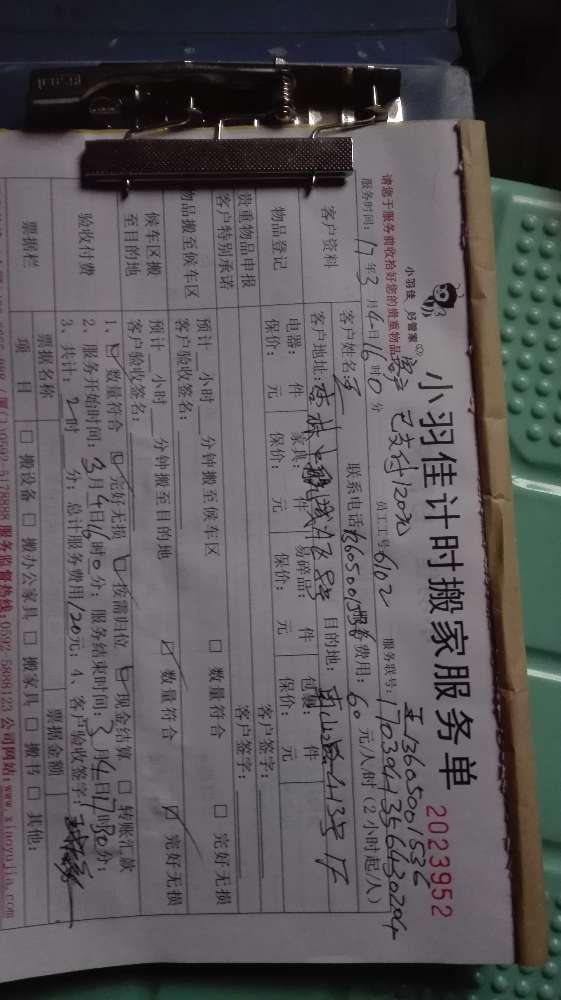 小羽佳 好管家
小羽佳计时搬家服务单
2023952
请您于服务前收拾好您的贵重物品
客户已支付120元
王13605001536
服务时间：17年3月4日16时0分
员工工号6102
服务联号：
客户资料
客户姓名：王
联系电话13605001536
服务费用：60元/人/时（2小时起/人）
客户地址：
目的地：
物品登记
电器： 件 家具： 件 易碎品： 件 包裹： 件
保价： 元 保价： 元 保价： 元 保价： 元
贵重物品申报
客户签字：
客户特别承诺
客户签字：
物品搬至候车区
预计 小时 分钟搬至候车区
□ 数量符合 □ 完好无损
客户验收签名：
候车区搬至目的地
预计 小时 分钟搬至目的地
☑ 数量符合 ☑ 完好无损
客户验收签名：
验收付费
1、☑ 数量符合 ☑ 完好无损 ☑ 按需归位 ☑ 现金结算 □ 转账汇款
2、服务开始时间：3月4日16时0分；服务结束时间：3月4日17时30分；
3、共计：2时 分；总计服务费用120元；4、客户验收签字：
票据栏
票据名称
票据金额
项 目
□ 搬设备 □ 搬办公家具 □ 搬家具 □ 搬书 □ 其他：
(厦门)0592-5128888 服务监督热线:0592-5888123 公司网站:www.xiaoyujia.com